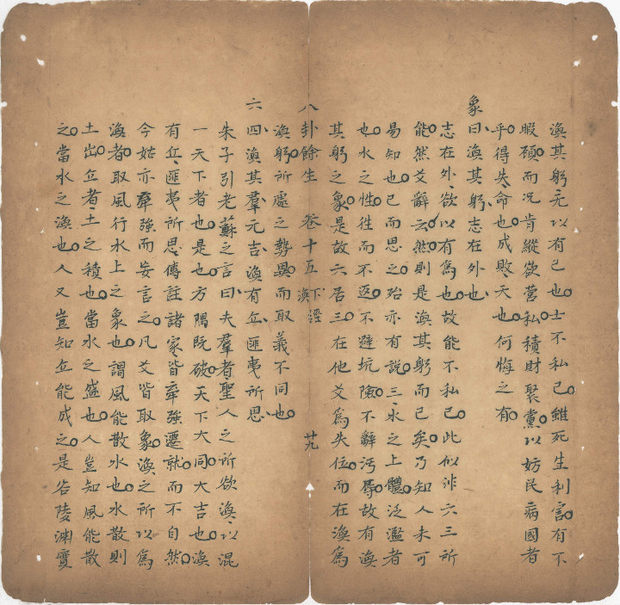 渙其躬无以有己也士不私己雖死生利害有不
暇顧而况肯縱欲營私積財聚黨以妨民病國者
乎得失命也成敗天也何悔之有
象曰渙其躬志在外也
志在外欲以有為也故能不私己此似非六三所
能然爻辭云然則是渙其躬而已矣乃知人未可
易知也已而思之殆亦有說三水之上體泛濫者
也水之性往而不返不避坑險不辭污辱故有渙
其躬之象是故六居三在他爻為失位而在渙為
八卦餘生 卷十五 渙 下經 廿九
渙躬所處之勢異而取義不同也
六四渙其羣元吉渙有丘匪夷所思
朱子引老蘇之言曰夫羣者聖人之所欲渙以混
一天下者也是也方隅既破天下大同大吉也渙
有丘匪夷所思傳註諸家皆牽強遷就而不自然
今姑亦牽強而妄言之凡爻皆取象渙之所以為
渙者取風行水上之象也謂風能散水也水散則
土出丘者土之積也當水之盛也人豈知風能散
之當水之渙也人又豈知丘能成之是谷陵淵實